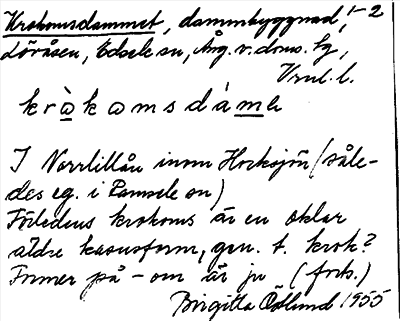 Krokomsdammet, dammbyggnad, 1-2
Lövåsen, Edsele sn, Ång. v. doms. hg,
krɷ̀kɷmsdámː
I Norrlillån inom Hocksjön (såle-
des eg. i Ramsele sn)
Förledens krokoms är en oklar
äldre kasusform, gen. t. krok?
Former på -om är ju (forts.)
Birgitta Östlund 1955